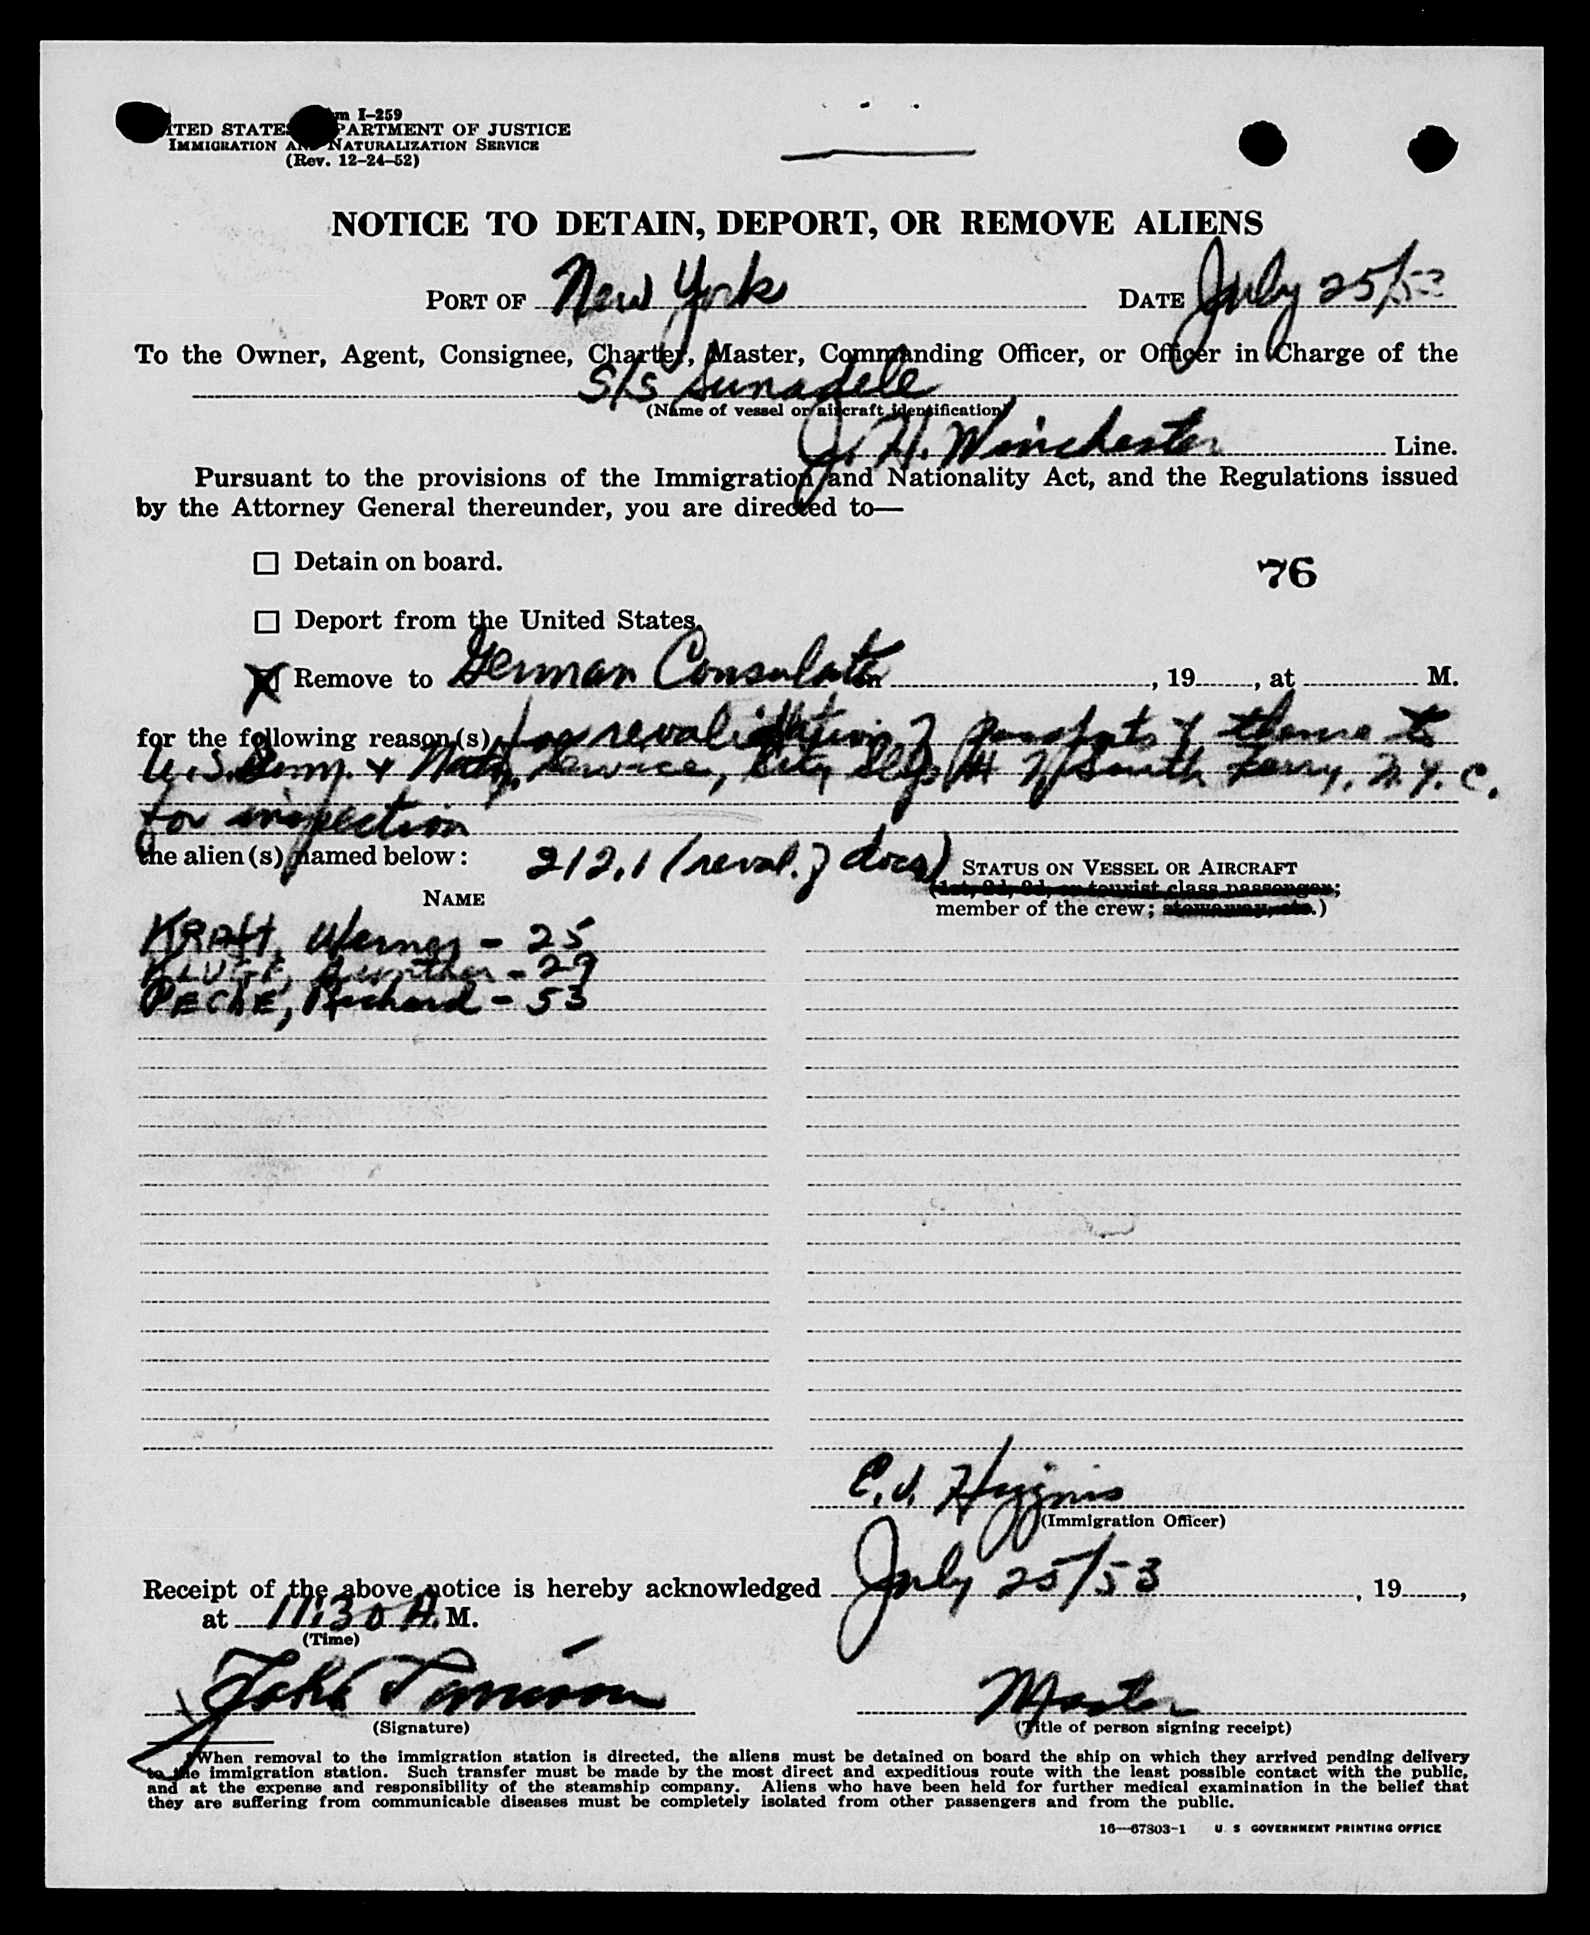 Form I-259
UNITED STATES DEPARTMENT OF JUSTICE
IMMIGRATION AND NATURALIZATION SERVICE
(Rev. 12-24-52)
NOTICE TO DETAIN, DEPORT, OR REMOVE ALIENS
PORT OF New York DATE July 25/53
To the Owner, Agent, Consignee, Charter, Master, Commanding Officer, or Officer in Charge of the
S/S Sunadele
(Name of vessel or aircraft identification)
J. H. Winchester Line.
Pursuant to the provisions of the Immigration and Nationality Act, and the Regulations issued
by the Attorney General thereunder, you are directed to—
Detain on board.
76
Deport from the United States.
Remove to German Consulate on , 19 , at M.
for the following reason(s) for revalidation of passports & thence to
U.S. Imm. & Natz. Service, at South Ferry, N.Y.C.
for inspection
the alien(s) named below: 212.1 (reval. of docs)
STATUS ON VESSEL OR AIRCRAFT
(1st, 2d, 3d, or tourist class passenger;
NAME
member of the crew; stowaway, etc.)
KRAFT, Werner - 25
KLUGE, Gunther - 29
PECHE, Richard - 53
E. J. Higgins
(Immigration Officer)
Receipt of the above notice is hereby acknowledged July 25/53 , 19 ,
at 11:30 A. M.
(Time)
Master
(Signature)
(Title of person signing receipt)
When removal to the immigration station is directed, the aliens must be detained on board the ship on which they arrived pending delivery
to the immigration station. Such transfer must be made by the most direct and expeditious route with the least possible contact with the public,
and at the expense and responsibility of the steamship company. Aliens who have been held for further medical examination in the belief that
they are suffering from communicable diseases must be completely isolated from other passengers and from the public.
16—67803-1 U. S. GOVERNMENT PRINTING OFFICE